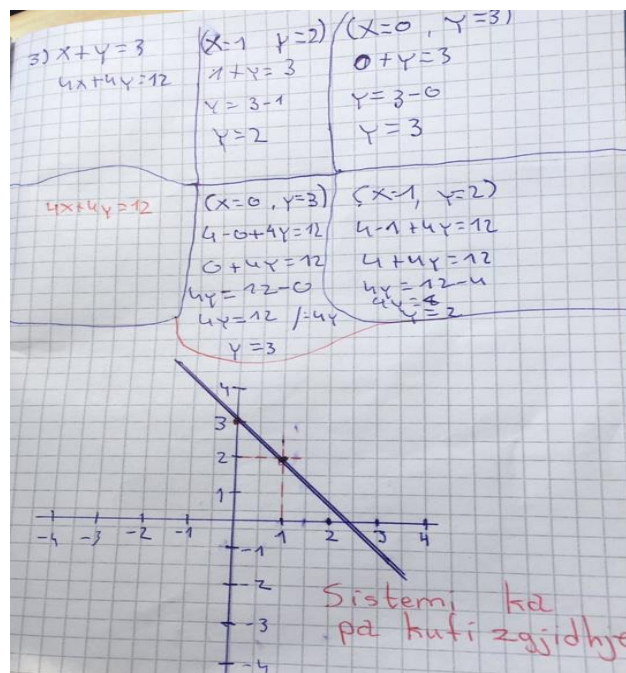 3) x+y=3
4x+4y=12
(x=1 y=2)
1+y=3
y=3-1
y=2
(x=0, y=3)
0+y=3
y=3-0
y=3
4x+4y=12
(x=0, y=3)
4-0+4y=12
0+4y=12
4y=12-0
4y=12 /:4y
y=3
(x=1, y=2)
4-1+4y=12
4+4y=12
4y=12-4
4y=8
y=2
4
3
2
1
-4 -3 -2 -1 1 2 3 4
-1
-2
-3
-4
Sistemi ka
pa kufi zgjidhje